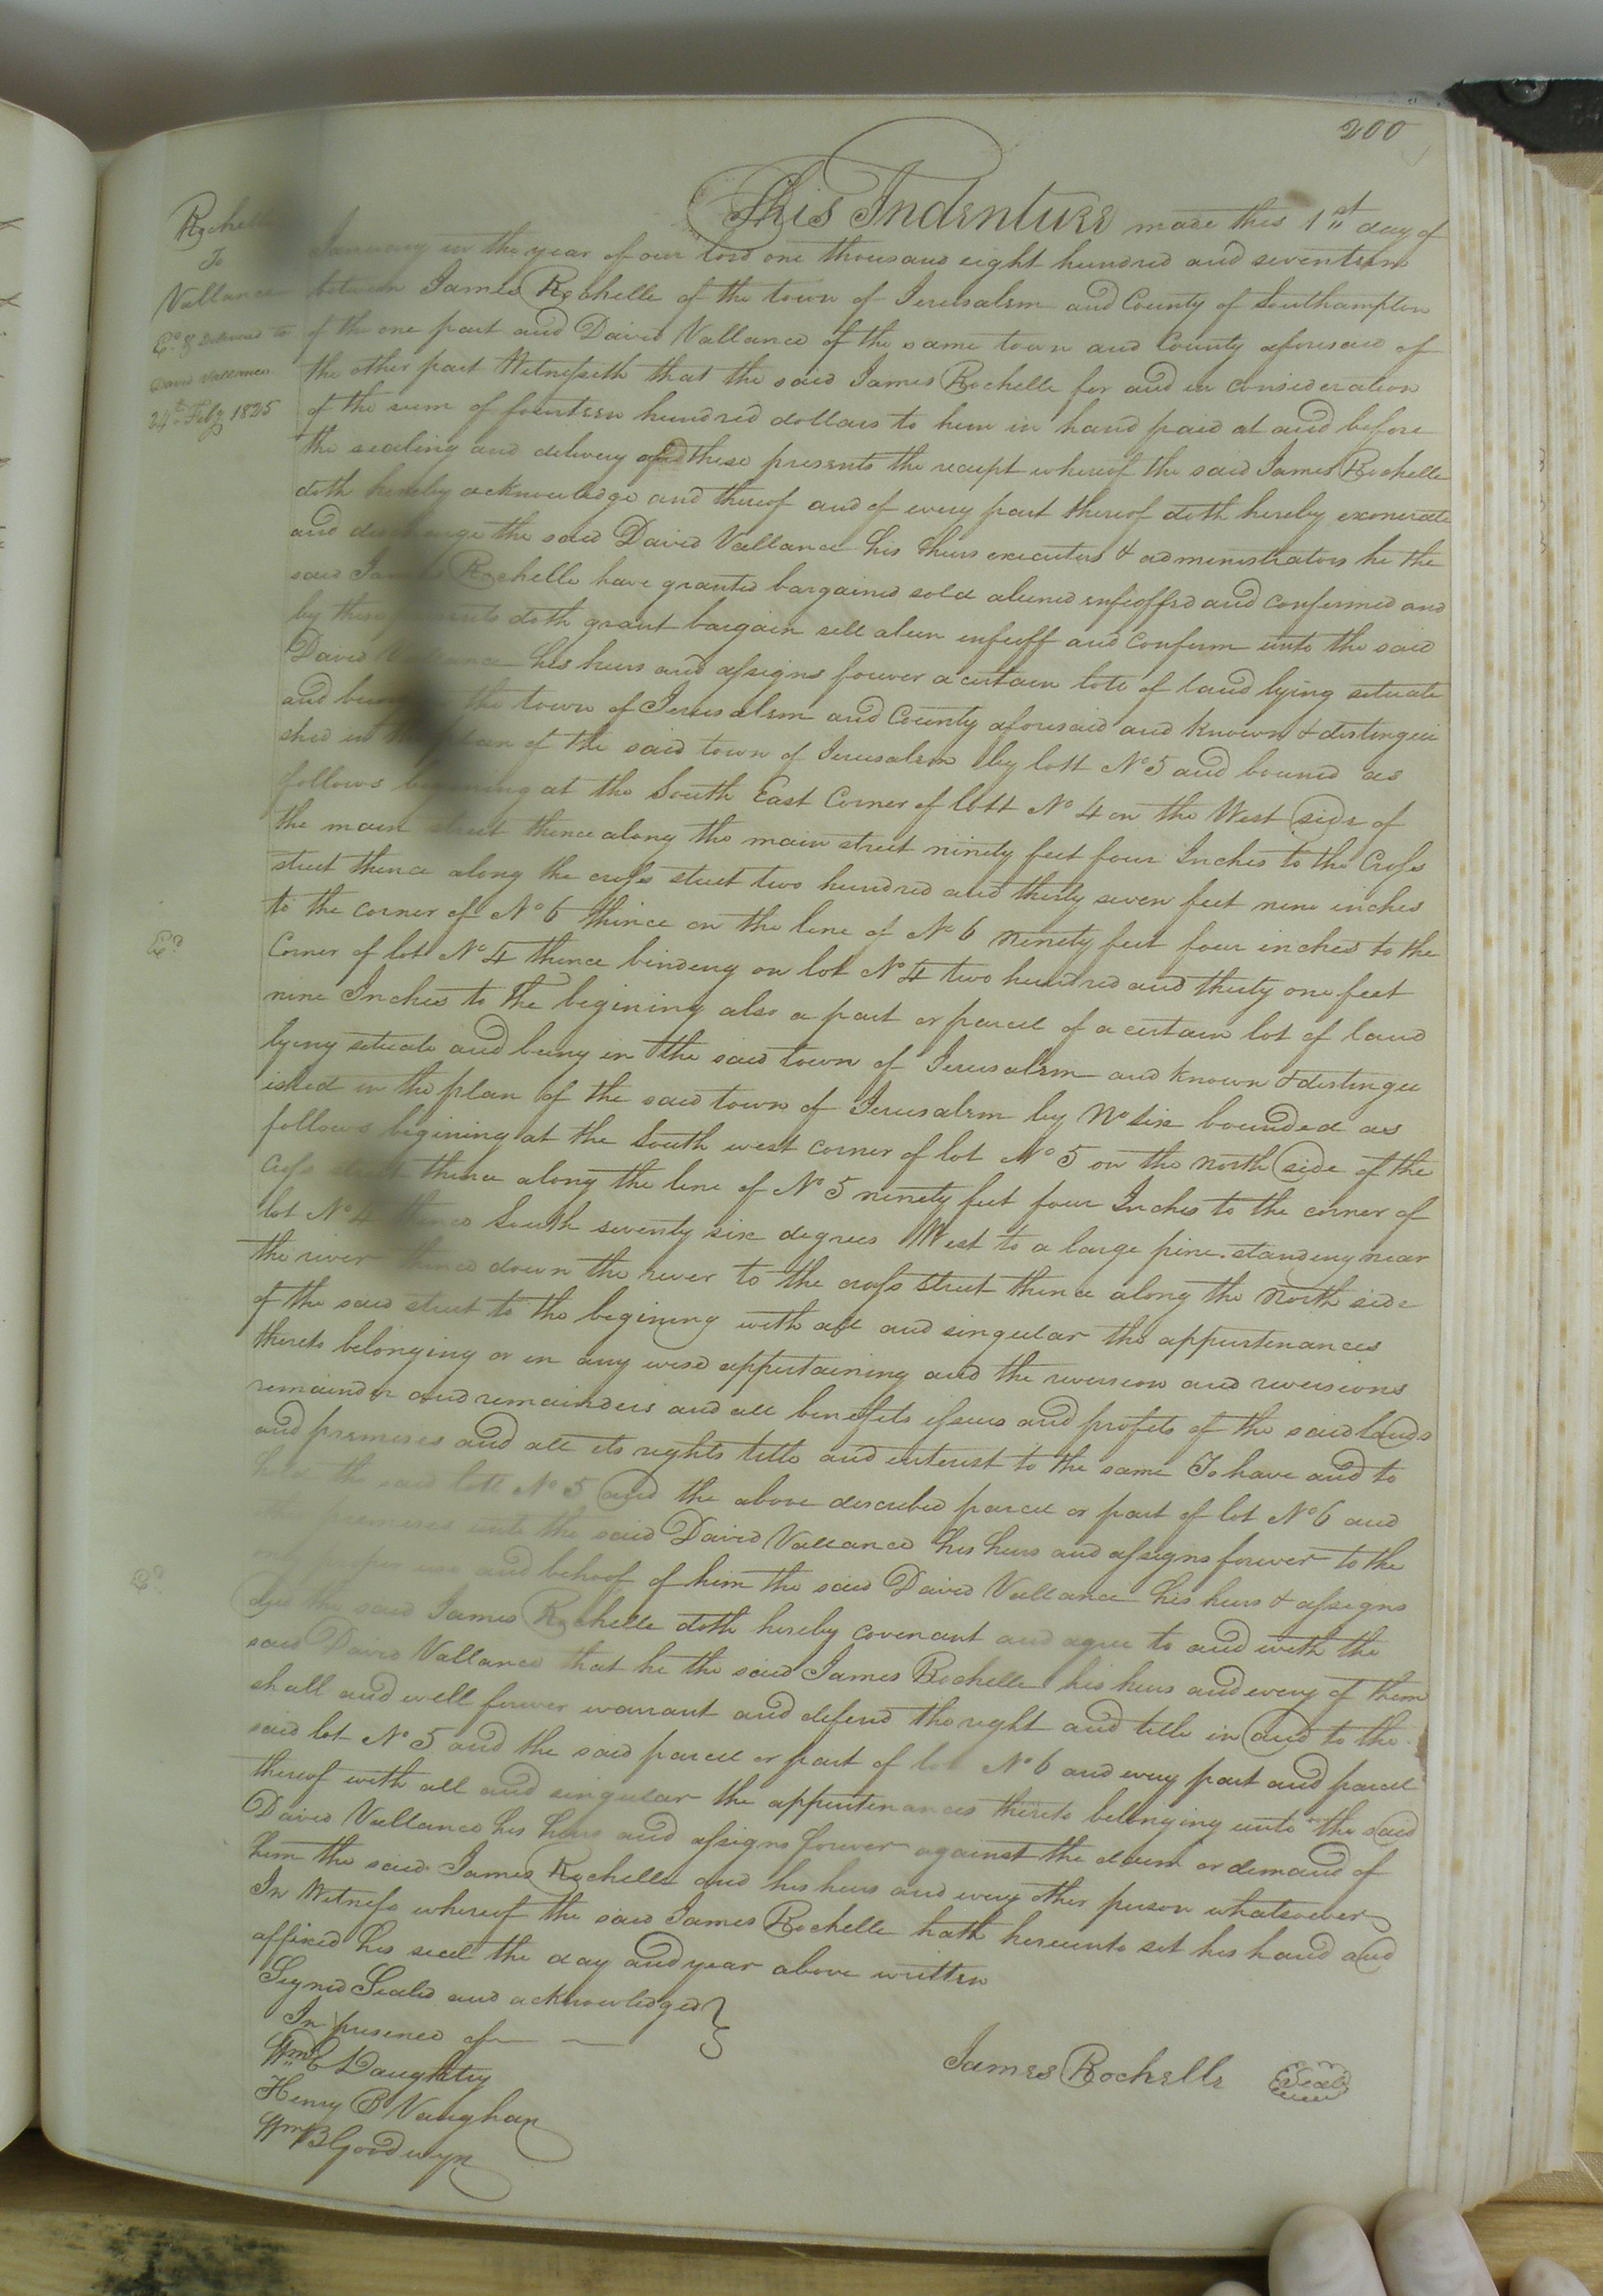 200
Rochelle
To
Vallance
Ed. & Delivered to
David Vallance
24th Feby 1825
This Indenture made this 1st day of
January in the year of our lord one thousand eight hundred and seventeen
between James Rochelle of the town of Jerusalem and County of Southampton
of the one part and David Vallance of the same town and County aforesaid of
the other part Witnesseth that the said James Rochelle for and in consideration
of the sum of fourteen hundred dollars to him in hand paid at and before
the sealing and delivery of these presents the receipt whereof the said James Rochelle
doth hereby acknowledge and thereof and of every part thereof doth hereby exonerate
and discharge the said David Vallance his heirs executors & administrators he the
said James Rochelle have granted bargained sold aliened enfeoffed and confirmed and
by these presents doth grant bargain sell alien enfeoff and confirm unto the said
David Vallance his heirs and assigns forever a certain lott of land lying situate
and being the town of Jerusalem and County aforesaid and known & distingui
shed in the plan of the said town of Jerusalem by lott No 5 and bound as
follows begining at the South East Corner of lott No 4 on the West side of
the main street thence along the main street ninety feet four Inches to the Cross
street thence along the cross street two hundred and thirty seven feet nine inches
to the corner of No 6 thince on the line of No 6 ninety feet four inches to the
Corner of lot No 4 thince binding on lot No 4 two hundred and thirty one feet
nine Inches to the begining also a part or parcel of a certain lot of land
lying situate and being in the said town of Jerusalem and known & distingu
ished in the plan of the said town of Jerusalem by No six bounded as
follows begining at the South west corner of lot No 5 on the north side of the
Cross street thence along the line of No 5 ninety feet four Inches to the corner of
lot No 4 thence South seventy six degrees West to a large pine standing near
the river thence down the river to the cross street thence along the North side
of the said street to the begining with all and singular the appurtenances
thereto belonging or in any wise appertaining and the reversion and reversions
remainder and remainders and all benefits issues and profits of the said lands
and premises and all its rights title and interest to the same To have and to
hold the said lott No 5 and the above described parcel or part of lot No 6 and
premises unto the said David Vallance his heirs and assigns forever to the
only proper use and behoof of him the said David Vallance his heirs & assigns
the said James Rochelle doth hereby covenant and agree to and with the
said David Vallance that he the said James Rochelle his heirs and every of them
shall and will forever warrant and defend the right and title in and to the
said lot No 5 and the said parcel or part of lot No 6 and every part and parcel
thereof with all and singular the appurtenances thereto belonging unto the said
David Vallance his heirs and assigns forever against the claim or demand of
him the said James Rochelle and his heirs and every other person whatsoever
In Witness whereof the said James Rochelle hath hereunto set his hand and
affixed his seal the day and year above written
Signed Sealed and acknowledged
In presence of
Wm C Daughtry
Henry B Vaughan
Wm B Goodwyn
James Rochelle Seal